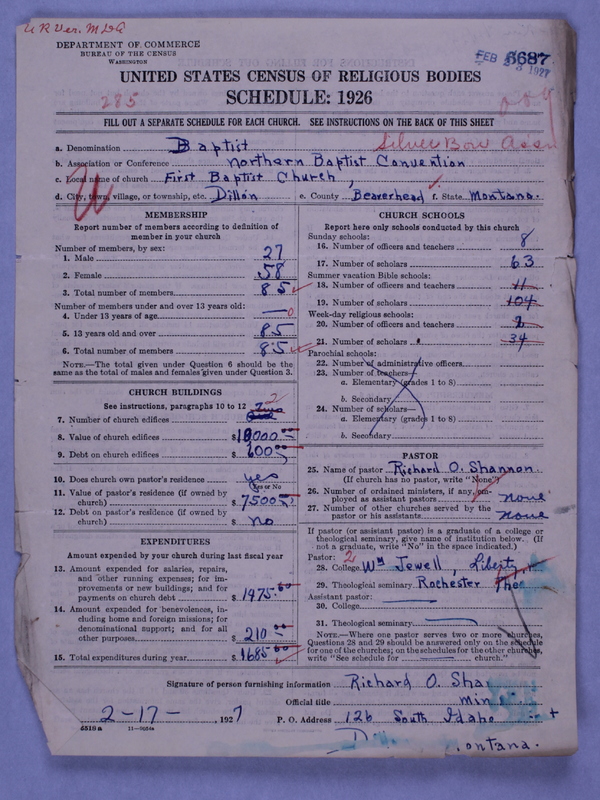 U R Ver. M DA
DEPARTMENT OF COMMERCE
BUREAU OF THE CENSUS
WASHINGTON
FEB 23 1927
6687
UNITED STATES CENSUS OF RELIGIOUS BODIES
285
SCHEDULE: 1926
009
FILL OUT A SEPARATE SCHEDULE FOR EACH CHURCH. SEE INSTRUCTIONS ON THE BACK OF THIS SHEET
a. Denomination Baptist Silver Bow Assn
b. Association or Conference Northern Baptist Convention
c. Local name of church First Baptist Church
U
d. City, town, village, or township, etc. Dillon e. County Beaverhead f. State Montana.
MEMBERSHIP
Report number of members according to definition of
member in your church
Number of members, by sex:
1. Male 27
2. Female 58
3. Total number of members 85
Number of members under and over 13 years old:
4. Under 13 years of age — 0
5. 13 years old and over 85
6. Total number of members 85
NOTE.—The total given under Question 6 should be the
same as the total of males and females given under Question 3.
CHURCH BUILDINGS
See instructions, paragraphs 10 to 12 2
7. Number of church edifices
8. Value of church edifices $18000.00
9. Debt on church edifices $600.00
10. Does church own pastor's residence? yes
Yes or No
11. Value of pastor's residence (if owned by
church) $7500.00
12. Debt on pastor's residence (if owned by
church) $ No
EXPENDITURES
Amount expended by your church during last fiscal year
13. Amount expended for salaries, repairs,
and other running expenses; for im-
provements or new buildings; and for
payments on church debt $1475.00
14. Amount expended for benevolences, in-
cluding home and foreign missions; for
denominational support; and for all
other purposes $210.00
15. Total expenditures during year $1685.00
CHURCH SCHOOLS
Report here only schools conducted by this church
Sunday schools:
16. Number of officers and teachers 8
17. Number of scholars 63
Summer vacation Bible schools:
18. Number of officers and teachers 11
19. Number of scholars 104
Week-day religious schools:
20. Number of officers and teachers 2
21. Number of scholars 34
Parochial schools:
22. Number of administrative officers
23. Number of teachers—
a. Elementary (grades 1 to 8)
b. Secondary
24. Number of scholars—
a. Elementary (grades 1 to 8)
b. Secondary
PASTOR
25. Name of pastor Richard O. Shannon.
(If church has no pastor, write "None")
26. Number of ordained ministers, if any, em-
ployed as assistant pastors none
27. Number of other churches served by the
pastor or his assistants none
If pastor (or assistant pastor) is a graduate of a college or
theological seminary, give name of institution below. (If
not a graduate, write "No" in the space indicated.)
Pastor: 2
28. College Wm Jewell, Liberty
29. Theological seminary Rochester Theo
Assistant pastor:
30. College
31. Theological seminary
NOTE.—Where one pastor serves two or more churches,
Questions 28 and 29 should be answered only on the schedule
for one of the churches; on the schedules for the other churches,
write "See schedule for church."
Signature of person furnishing information Richard O. Sha
Official title minis
2-17-, 1927 P. O. Address 126 South Idaho
5518 a 11—9054a
ontana.